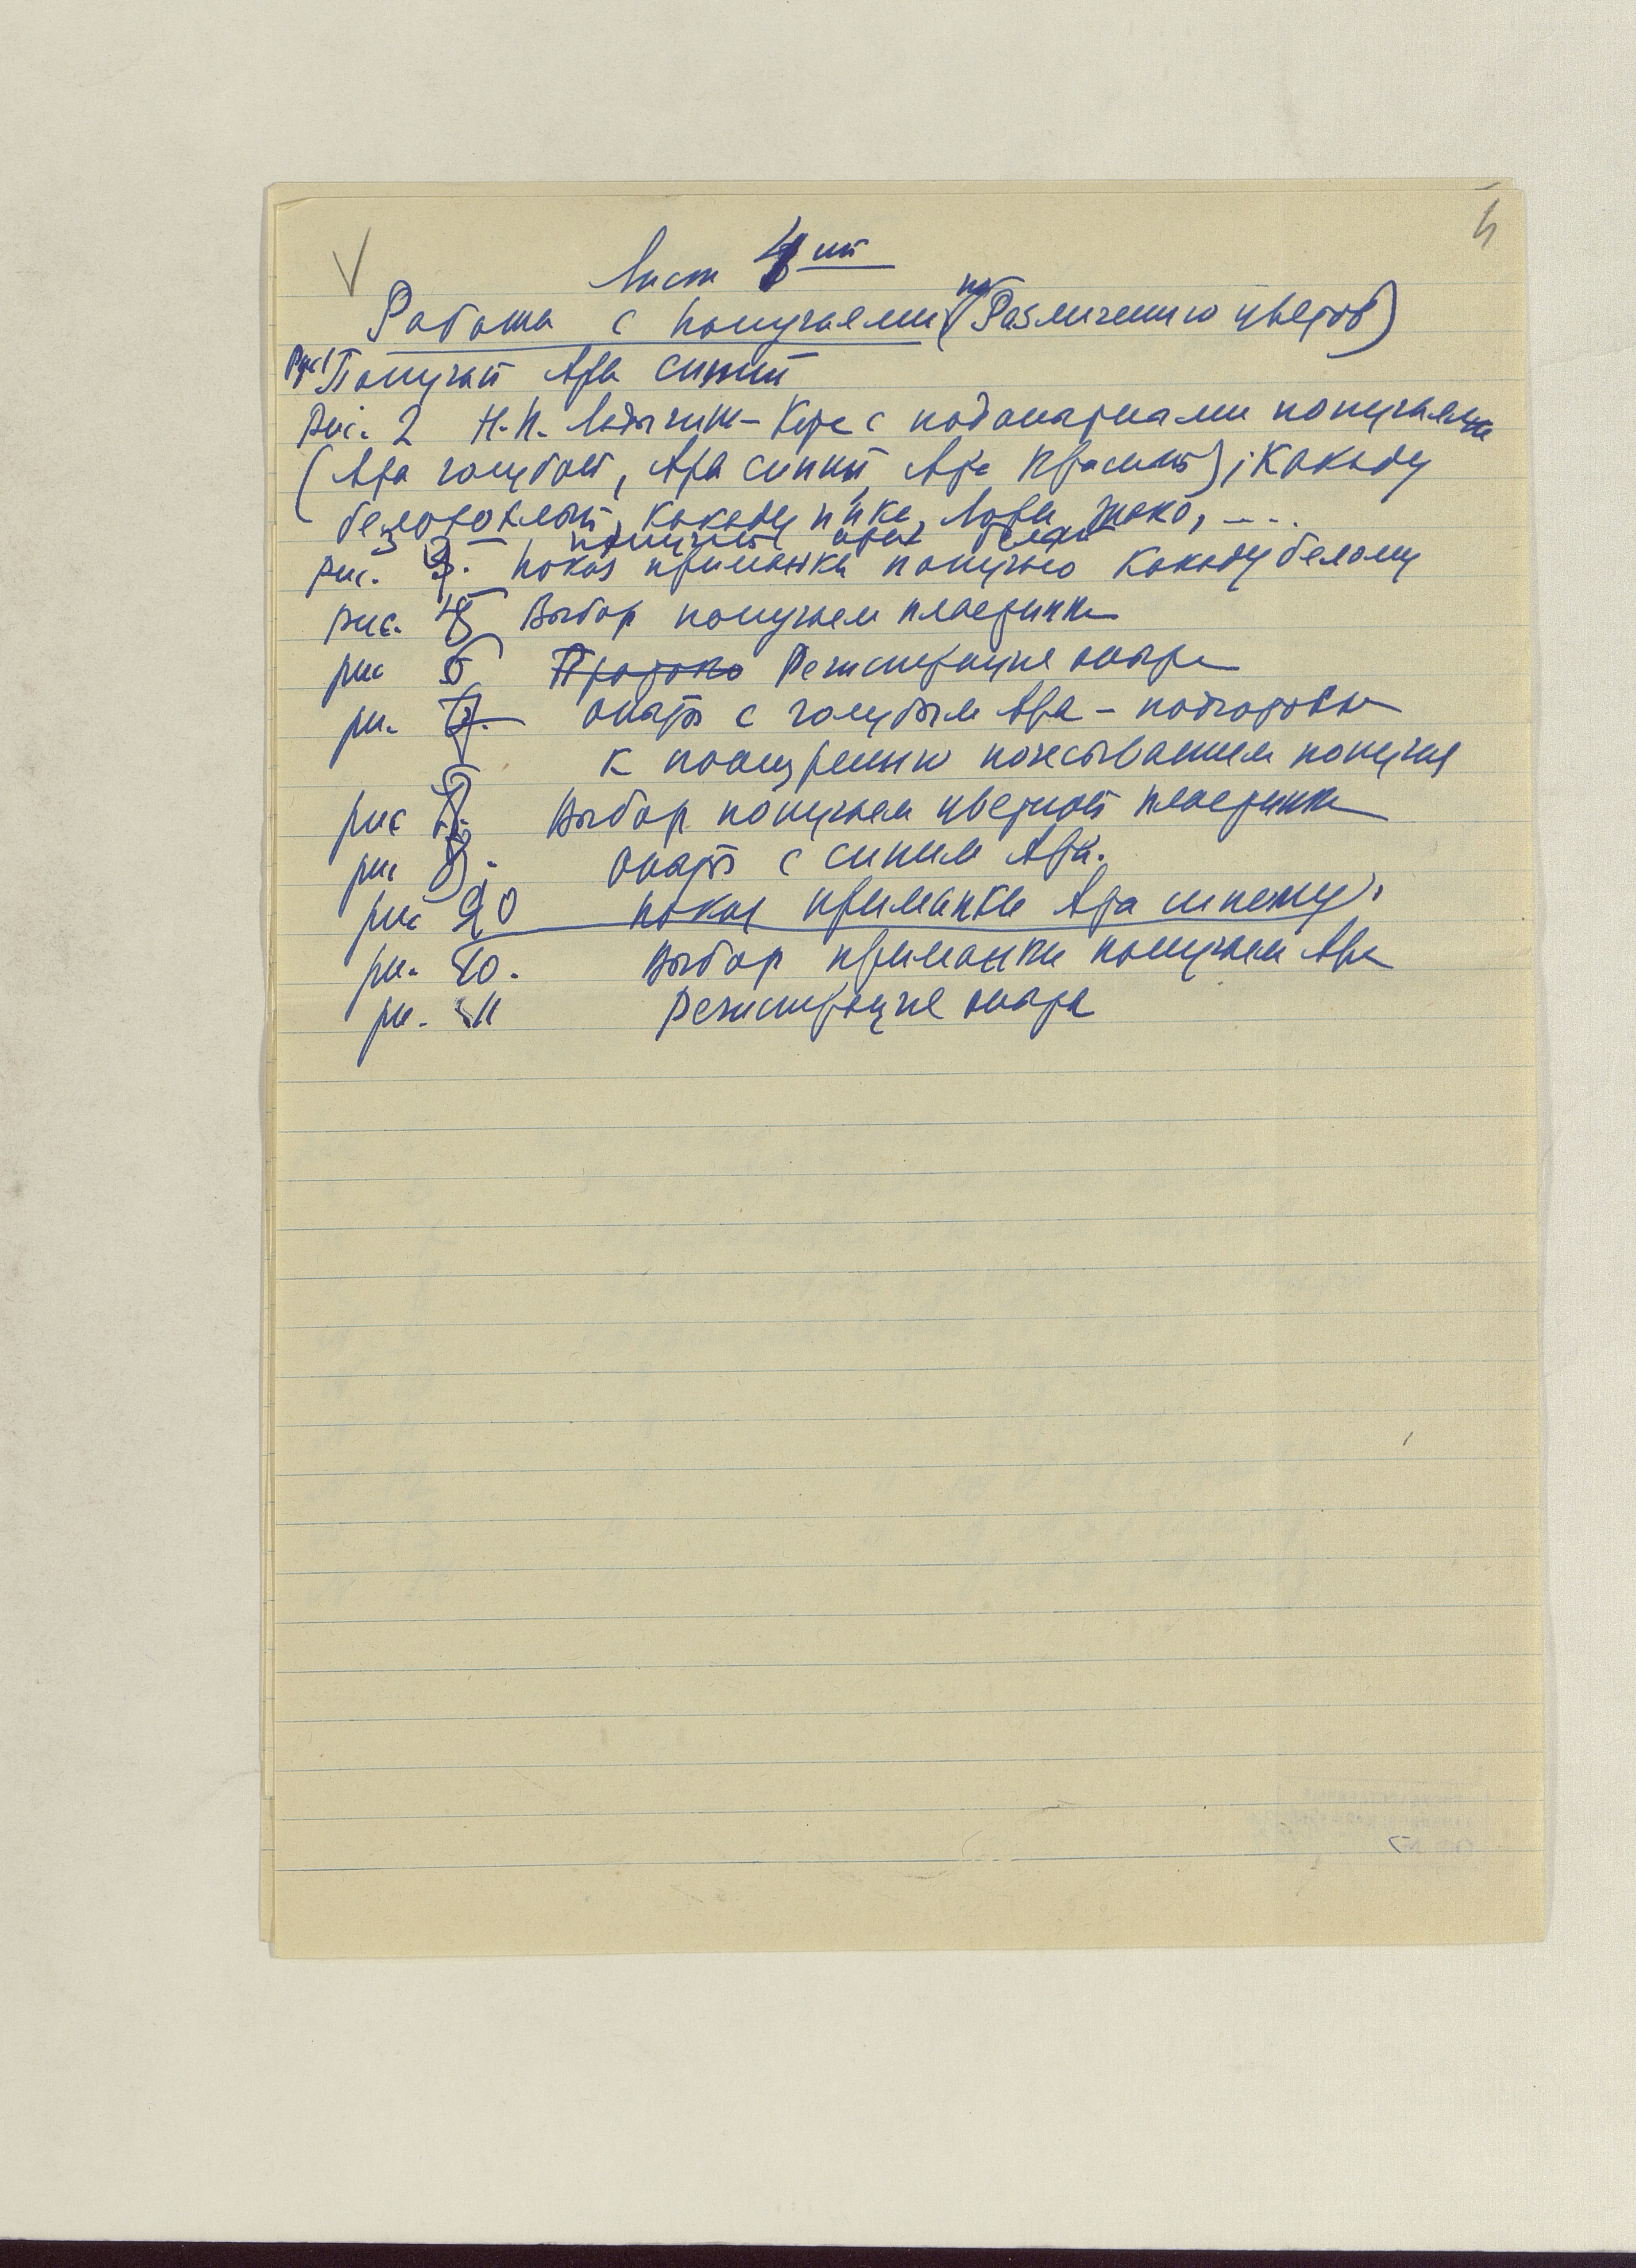 5
Лист 4ый
Работа с попугаями (по Различению цветов)
Рис 1 Попугай Ара синий
Рис. 2 Н.Н. Ладыгина-Котс с подопытными попугаями
(Ара голубой, Ара синий, Ара красный); Какаду
белохохлый, какаду инка, Лори, жако, ---.
3 попугай белый
рис. Показ приманки попугаю Какаду белому
рис. Выбор попугаем пластинки
рис 6 Протоко Регистрация опыта
рис. 7. опыт с голубым Ара – подготовка
к поощрению почесыванием попугая
рис 8. Выбор попугаем цветной пластинки
рис 9. опыт с синим Ара.
рис 10 показ приманки Ара синему.
рис. 10. Выбор приманки попугаем Ара
рис. 11 Регистрация опыта